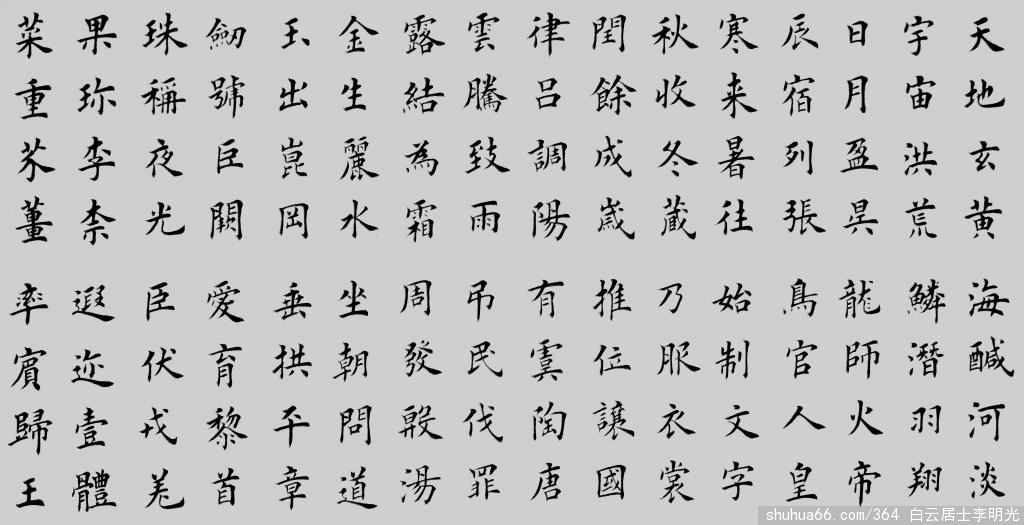 天地玄黄
宇宙洪荒
日月盈昃
辰宿列張
寒来暑往
秋收冬蔵
閏餘成歲
律吕調陽
雲騰致雨
露結為霜
金生麗水
玉出崑岡
劒號巨闕
珠稱夜光
果珎李柰
菜重芥薑
海醎河淡
鱗潛羽翔
龍師火帝
鳥官人皇
始制文字
乃服衣裳
推位讓國
有虞陶唐
吊民伐罪
周發殷湯
坐朝問道
垂拱平章
愛育黎首
臣伏戎羌
遐迩壹體
率賓歸王
shuhua66.com/364 白云居士李明光